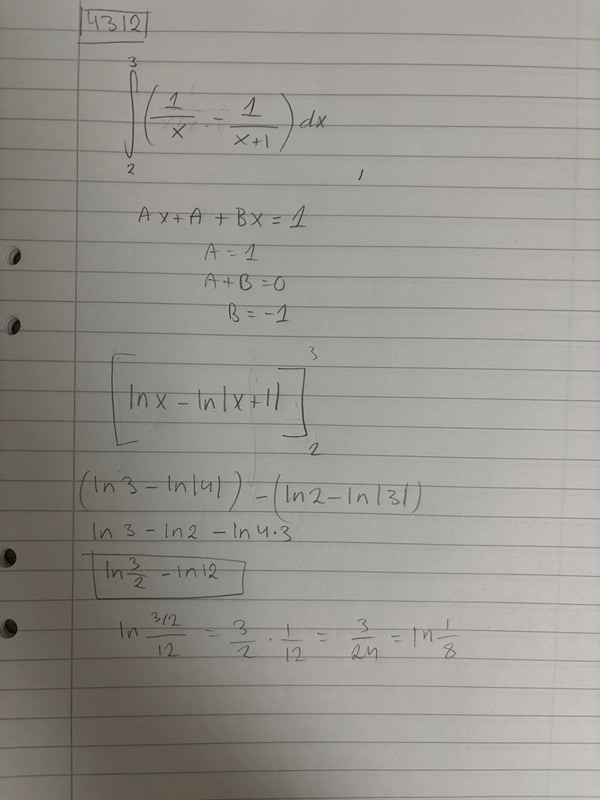 4312
∫₂³ (1/x - 1/(x+1)) dx
Ax + A + Bx = 1
A = 1
A + B = 0
B = -1
[ln x - ln|x+1|]₂³
(ln 3 - ln|4|) - (ln 2 - ln|3|)
ln 3 - ln 2 - ln 4·3
ln 3/2 - ln 12
ln (3/2)/12 = 3/2 · 1/12 = 3/24 = ln 1/8